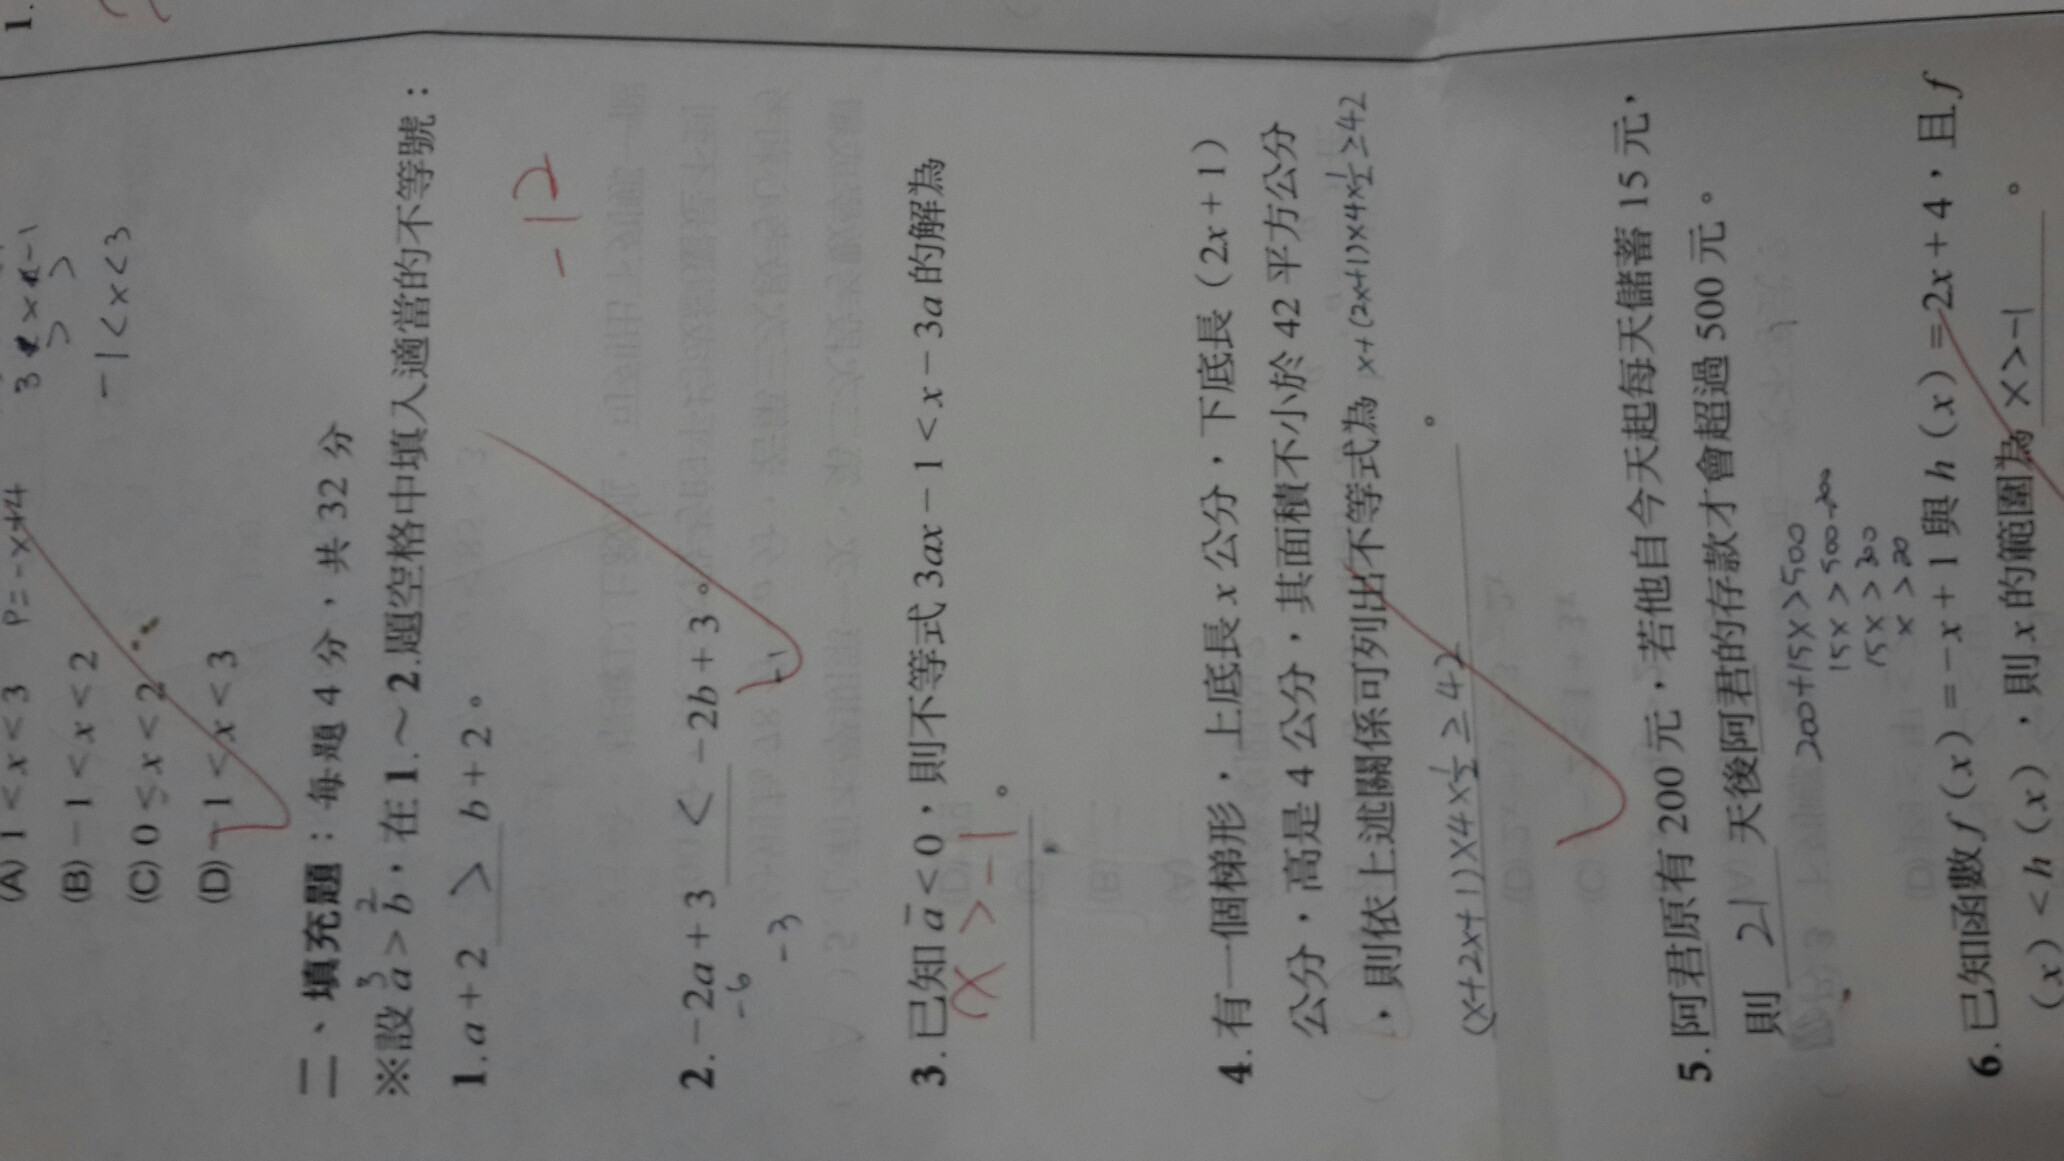 1.
(A) 1 < x < 3 P = -x+4
(B) -1 < x < 2
(C) 0 ≤ x < 2
(D) -1 < x < 3
-1 < x < 3
二、填充題：每題 4 分，共 32 分
※設 a > b，在 1.～2.題空格中填入適當的不等號：
3 2
1. a + 2 > b + 2。
-12
2. -2a + 3 < -2b + 3。
-6
-3
-1
3. 已知 a < 0，則不等式 3ax - 1 < x - 3a 的解為
x > -1 。
4. 有一個梯形，上底長 x 公分，下底長（2x + 1）
公分，高是 4 公分，其面積不小於 42 平方公分
，則依上述關係可列出不等式為 x+(2x+1)×4×½≥42
(x+2x+1)×4×½ ≥ 42 。
5. 阿君原有 200 元，若他自今天起每天儲蓄 15 元，
則 21 天後阿君的存款才會超過 500 元。
200+15x>500
15x > 500-200
15x > 300
x > 20
6. 已知函數 f（x）= -x + 1 與 h（x）= 2x + 4，且 f
（x）< h（x），則 x 的範圍為 x>-1 。